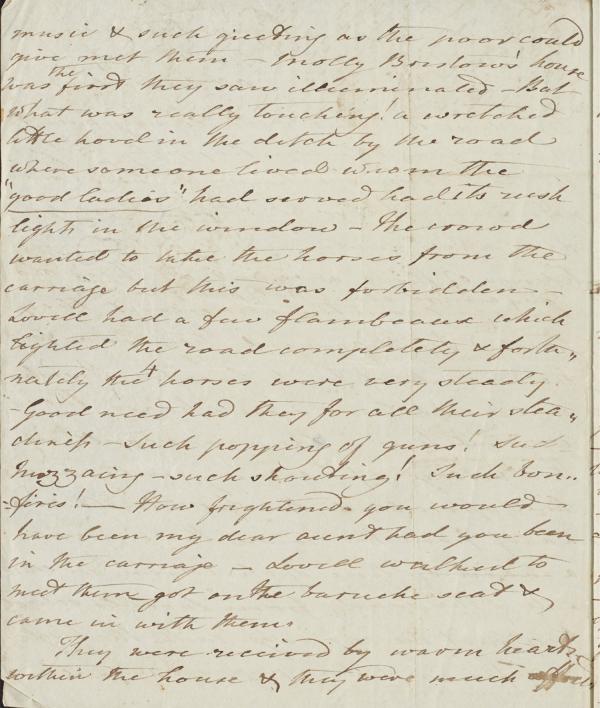 music & such greeting as the poor could
give met them – Molly Bristow's house
was the first they saw illuminated – But
what was really touching! a wretched
little hovel in the ditch by the road
where some one lived whom the
"good ladies" had served had its rush
light in the window – The crowd
wanted to take the horses from the
carriage but this was forbidden –
Lovell had a few flambeaux which
lighted the road completely & fortu„
nately the 4 horses were very steady
– Good need had they for all their stea„
diness – Such popping of guns! Such
huzzaing – such shouting! Such bon„
-fires! – How frightened you would
have been my dear aunt had you been
in the carriage – Lovell walked to
meet them got on the barouche seat &
came in with them.
They were received by warm hearts
within the house & they were much